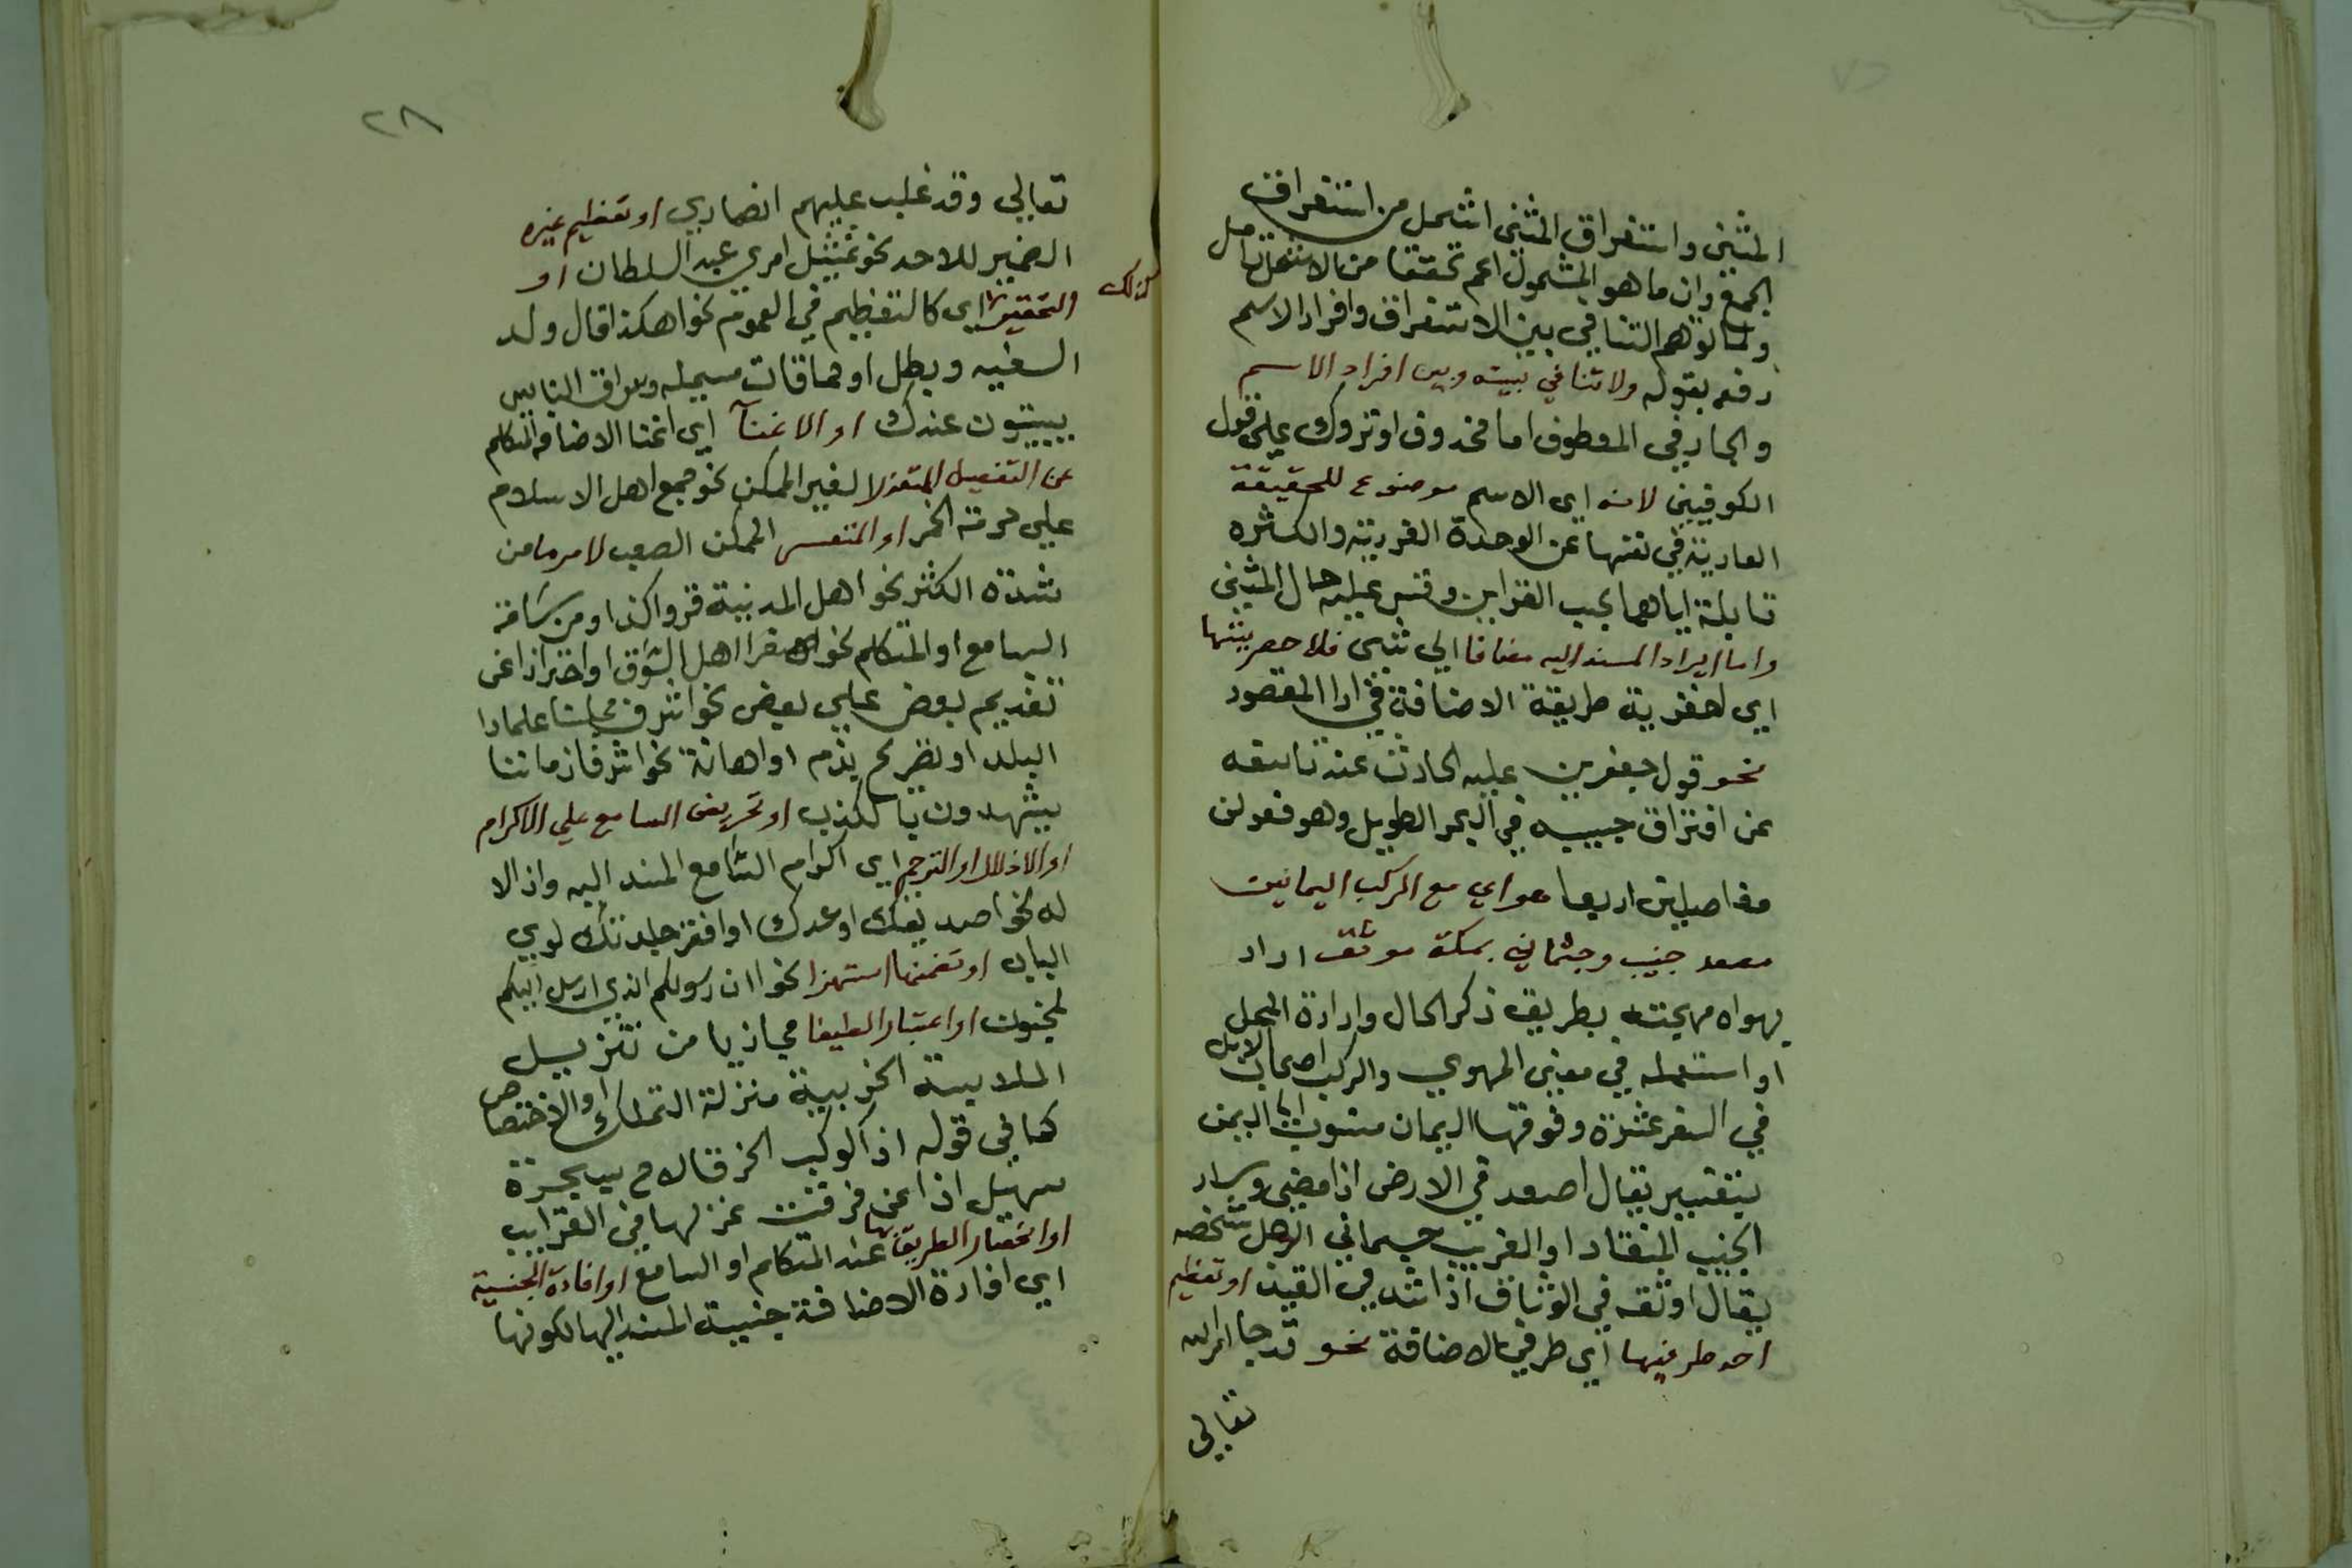 المثنى واستغراق المثنى اشمل من استغراق
الجمع وان ما هو المشمول اعم تحققا من الاشمل تامل
ولما توهم التنافي بين الاستغراق وافراد الاسم
دفعه بقوله ولا تنافي بينه وبين افراد الاسم
والجار في المعطوف اما محذوف او تروك على قول
الكوفيين لانه اي الاسم موضوع للحقيقة
العارية في نفسها عن الوحدة الفردية والكثرة
قابلة اياهما بحسب القراين وقس عليه حال المثنى
واما ايراد المسند اليه مضافا الى شي فلاحصريتها
اي لحضرية طريقة الاضافة في ادا المقصود
نحو قول جعفر بن علبه الحارث عند تاسفه
عن افتراق حبيبه في البحر الطويل وهو فعولن
مفاعيلن اربعا هواي مع الركب اليمانين
مصعد جنيب وجثماني بمكة موثق اراد
يهواه مهجته بطريق ذكر الحال وارادة المحل
او استعمله في معنى المهوي والركب اصحاب الابل
في السفر عشرة وفوقها اليمان منسوب الى اليمن
بتغيير يقال اصعد في الارض اذا مضى وسار
الجنيب المنقاد او الغريب جسماني الرجل شخصه
يقال اوثقه في الوثاق اذا شد في القيد او تعظيم
احد طرفيها اي طرفي الاضافة نحو قد جا امر الله
تعالى
٢٨
تعالى وقد غلب عليهم انصاري او تعظيم غيره
الضمير للاحد نحو تمثيل امري عبد السلطان او
والتحقير اي كالتعظيم في العموم نحو هكذا قال ولد
كذلك
السفيه وبطل او حماقات وسراق الناس
يبيتون عندك او الاغنآ اي اغنا الاضافه المتكلم
عن التفصيل المتعذر لا لغير الممكن نحو جمع اهل الاسلام
على حرمة الخمر او المتعسر الممكن الصعب لامر ما من
شدة الكثر نحو اهل المدينة قروا كذا او من سامة
السامع او المتكلم نحو اهل السوق او احترازا عن
تقديم بعض على بعض نحو اشرف مجلسنا علما دا
البلد او تصريح بذم او اهانة نحو اشرفا زماننا
يشهدون بالكذب او تحريض السامع على الاكرام
او الاذلال او الترحم اي اكرام السامع المسند اليه واذلا
له نحو صديقك او عدك او افقر جلدتك لدي
الباب او تضمنها استهزا نحو ان رسولكم الذي ارسل اليكم
لمجنون او اعتبارا لطيفا مجازيا من تنزيل
الملابسة الجزبية منزلة التملك او الاختصاص
كما في قوله اذا كوكب الخرقا لاح بسحرة
سهيل اذاعت فرقت غزلها في القرايب
او انحصار الطريق بها عند المتكلم او السامع او افادة الجنسية
اي افادة الاضافة جنسية المسند اليها لكونها